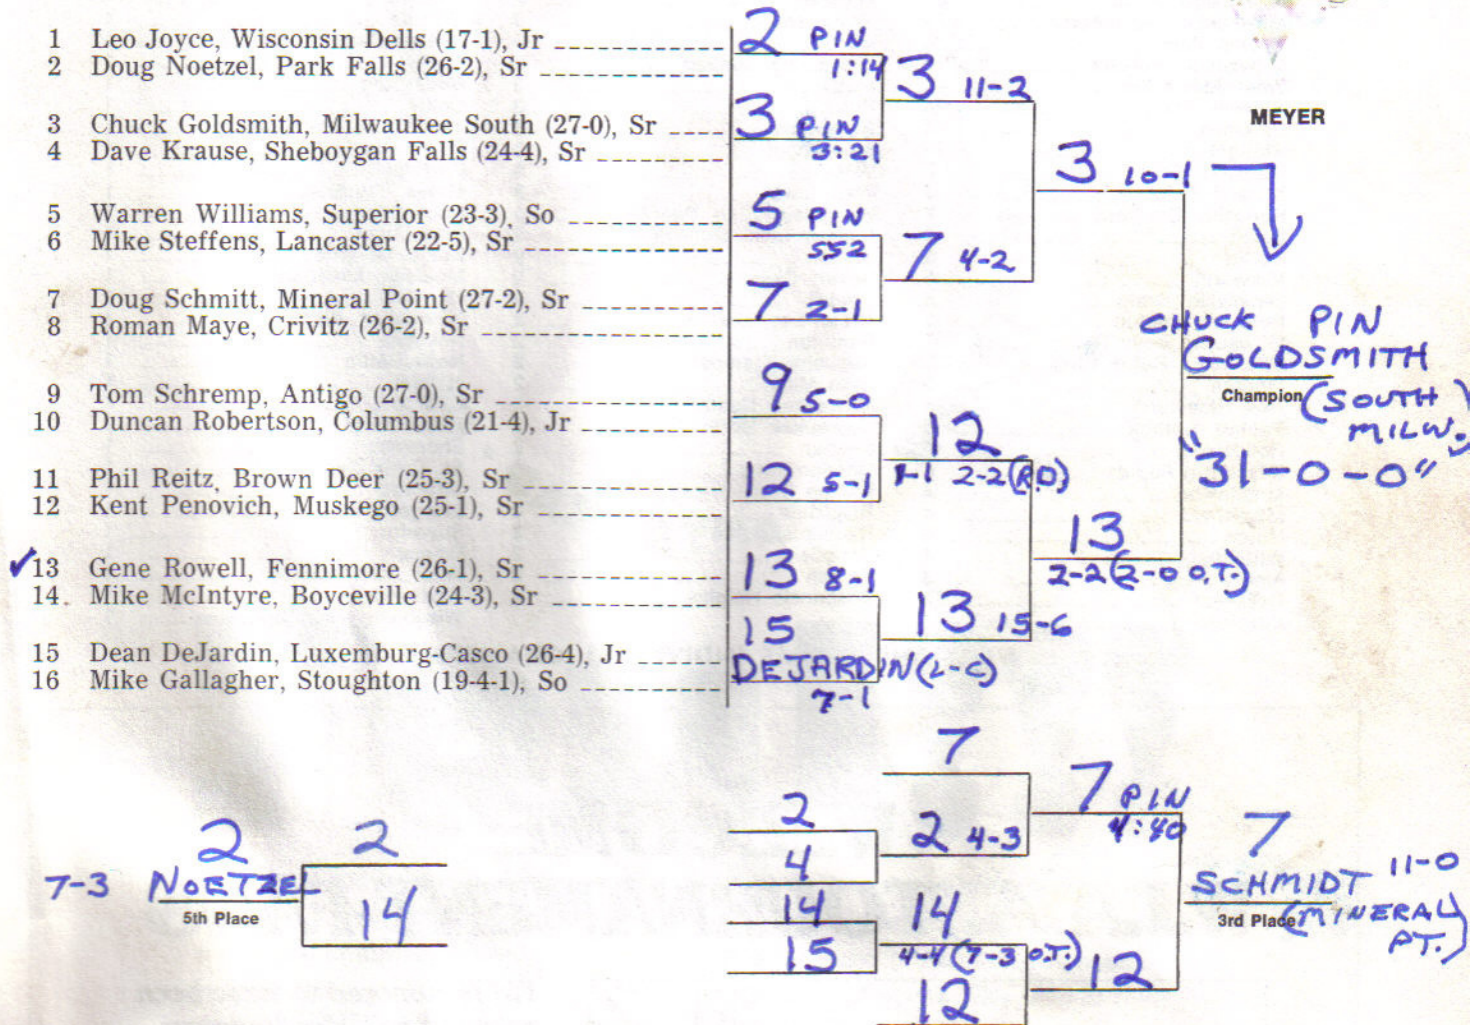 1 Leo Joyce, Wisconsin Dells (17-1), Jr
2 Doug Noetzel, Park Falls (26-2), Sr
3 Chuck Goldsmith, Milwaukee South (27-0), Sr
4 Dave Krause, Sheboygan Falls (24-4), Sr
5 Warren Williams, Superior (23-3), So
6 Mike Steffens, Lancaster (22-5), Sr
7 Doug Schmitt, Mineral Point (27-2), Sr
8 Roman Maye, Crivitz (26-2), Sr
9 Tom Schremp, Antigo (27-0), Sr
10 Duncan Robertson, Columbus (21-4), Jr
11 Phil Reitz, Brown Deer (25-3), Sr
12 Kent Penovich, Muskego (25-1), Sr
✓13 Gene Rowell, Fennimore (26-1), Sr
14. Mike McIntyre, Boyceville (24-3), Sr
15 Dean DeJardin, Luxemburg-Casco (26-4), Jr
16 Mike Gallagher, Stoughton (19-4-1), So
2 PIN
1:14
3 PIN
3:21
5 PIN
552
7 2-1
9 5-0
12 5-1
13 8-1
15
DEJARDIN (L-C)
7-1
3 11-2
7 4-2
12
1-1 2-2 (R.D.)
13 15-6
3 10-1
13
2-2 (2-0 O.T.)
MEYER
CHUCK PIN
GOLDSMITH
Champion (SOUTH
MILW.)
"31-0-0"
2
7-3 NOETZEL
5th Place
2
14
2
4
14
15
7
2 4-3
14
4-4 (7-3 O.T.)
12
7 PIN
4:40
12
7
SCHMIDT 11-0
3rd Place (MINERAL
PT.)